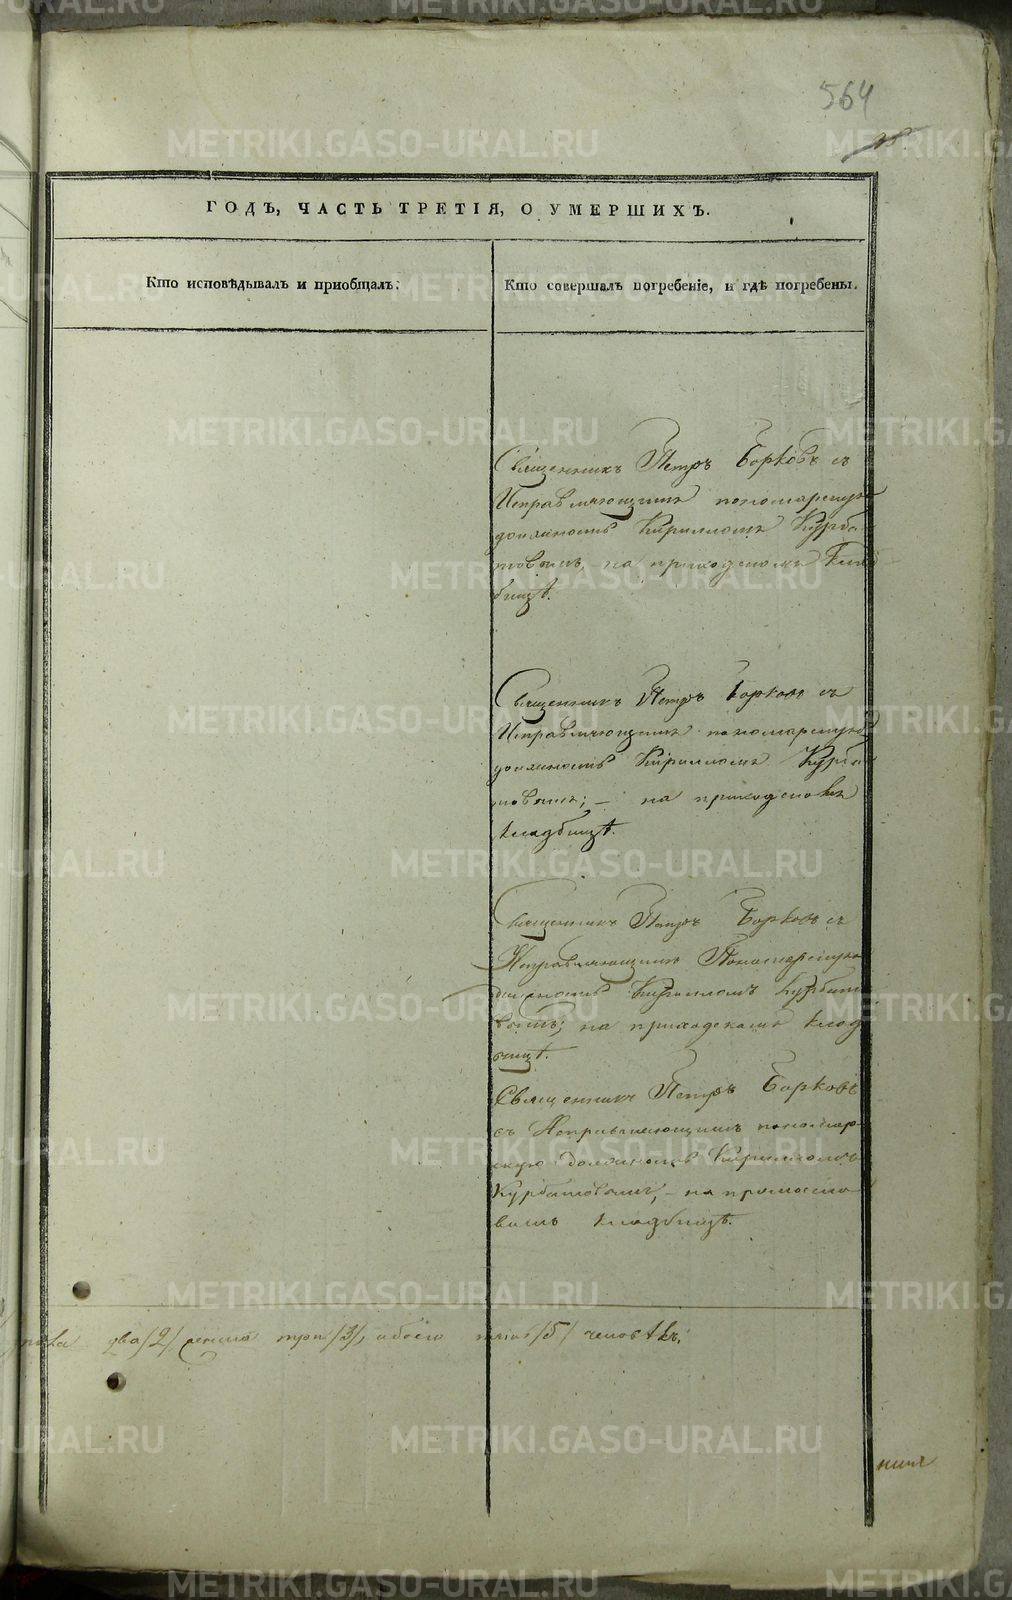 564
ГОДЪ, ЧАСТЬ ТРЕТІЯ, О УМЕРШИХЪ.
Кто исповѣдывалъ и приобщалъ.
Кто совершалъ погребеніе, и гдѣ погребены.
Священникъ Петръ Борковъ съ
Исправляющимъ пономарскую
должность Кириломъ Курба
товымъ, на приходскомъ клад
бищѣ.
Священникъ Петръ Борковъ съ
Исправляющимъ пономарскую
должность Кириломъ Курба
товымъ; – на приходскомъ
кладбищѣ.
Священникъ Петръ Борковъ съ
Исправляющимъ Пономарскую
должность Кириломъ Курбато
вымъ; на приходскомъ клад
бищѣ.
Священникъ Петръ Борковъ
съ Исправляющимъ пономар-
скую должность Кириломъ
Курбатовымъ, – на
кладбищѣ.
пола два /2/ женска три /3/, обоего /5/ человѣкъ.
METRIKI.GASO-URAL.RU